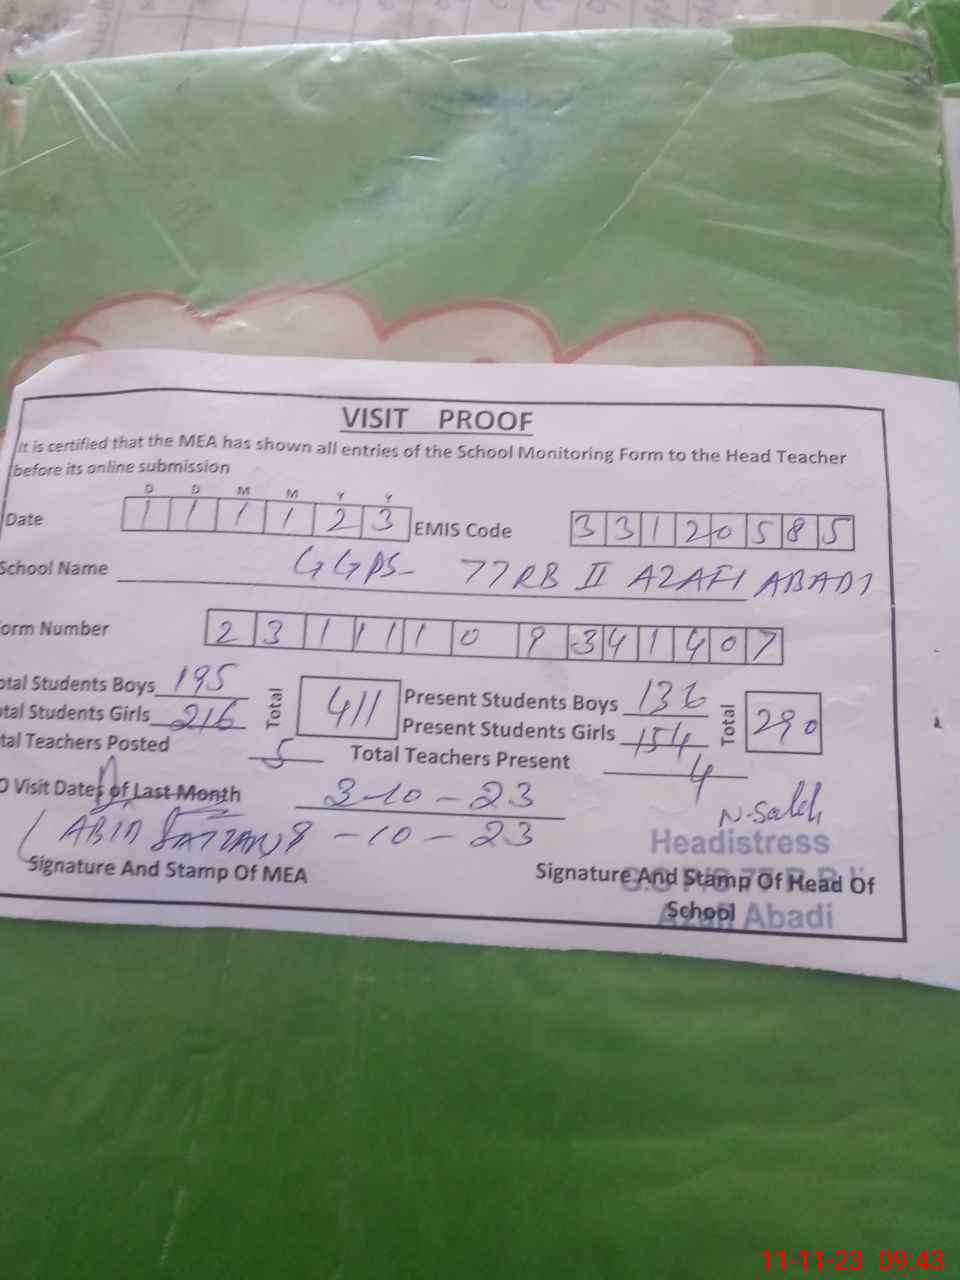 VISIT PROOF
It is certified that the MEA has shown all entries of the School Monitoring Form to the Head Teacher
before its online submission
D D M M Y Y
Date 1 1 1 1 2 3 EMIS Code 3 3 1 2 0 5 8 5
School Name GGPS- 77RB II AZAFI ABADI
orm Number 2 3 1 1 1 1 0 9 3 4 1 4 0 7
otal Students Boys 195 Total 411 Present Students Boys 136 Total 290
otal Students Girls 216 Present Students Girls 154
tal Teachers Posted 5 Total Teachers Present 4
O Visit Dates of Last Month 3-10-23
ABID 8-10-23
Headistress
Signature And Stamp Of MEA Signature And Stamp Of Head Of
School
Azafi Abadi
11-11-23 09:43